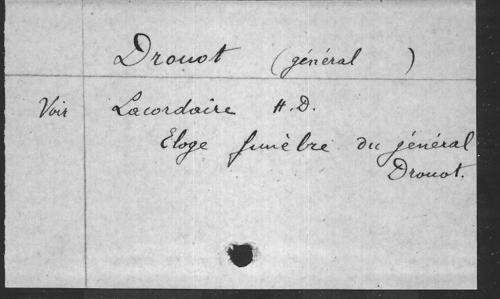 Drouot (général)
Voir Lacordaire H.D.
Eloge funèbre du général
Drouot.